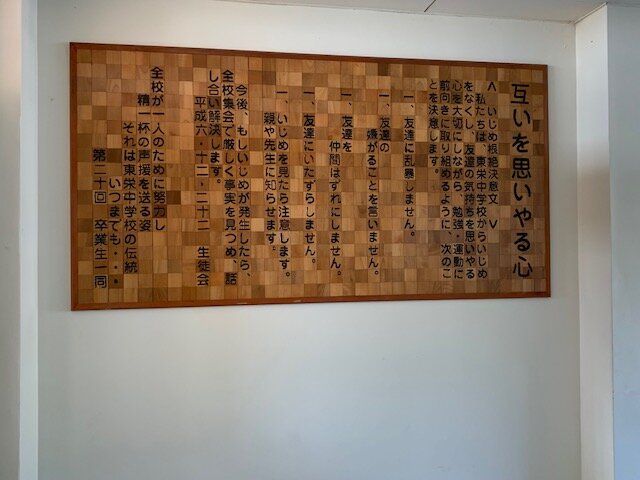 互いを思いやる心
＜ いじめ根絶決意文 ＞
私たちは、東栄中学校からいじめ
をなくし、友達の気持ちを思いやる
心を大切にしながら、勉強・運動に
前向きに取り組めるように、次のこ
とを決意します。
一、友達に乱暴しません。
一、友達の
嫌がることを言いません。
一、友達を
仲間はずれにしません。
一、友達にいたずらしません。
一、いじめを見たら注意します。
親や先生に知らせます。
今後、もしいじめが発生したら、
全校集会で厳しく事実を見つめ、話
し合い解決します。
平成六・十二・二十二 生徒会
全校が一人のために努力し
精一杯の声援を送る姿
それは東栄中学校の伝統
いつまでも・・・
第二十回 卒業生一同